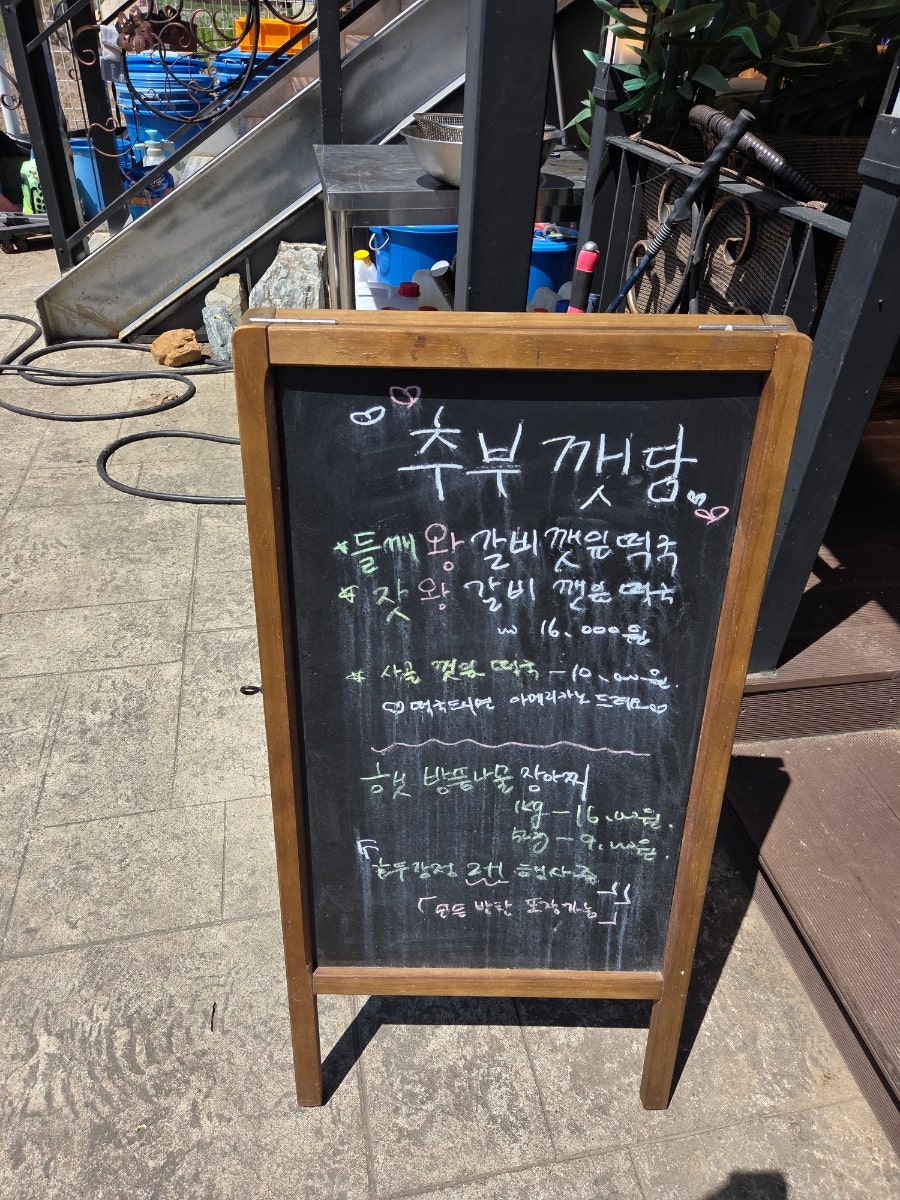 추부 깻담
들깨 왕 갈비 깻잎 떡국
잣 왕 갈비 깻잎 떡국
₩ 16.000원
사골 깻잎 떡국 - 10.000원.
떡국드시면 아메리카노 드려요
햇 방풍나물 장아찌
1kg - 16.000원.
- 9.000원.
호두강정 행사중
「모든 반찬 포장가능」